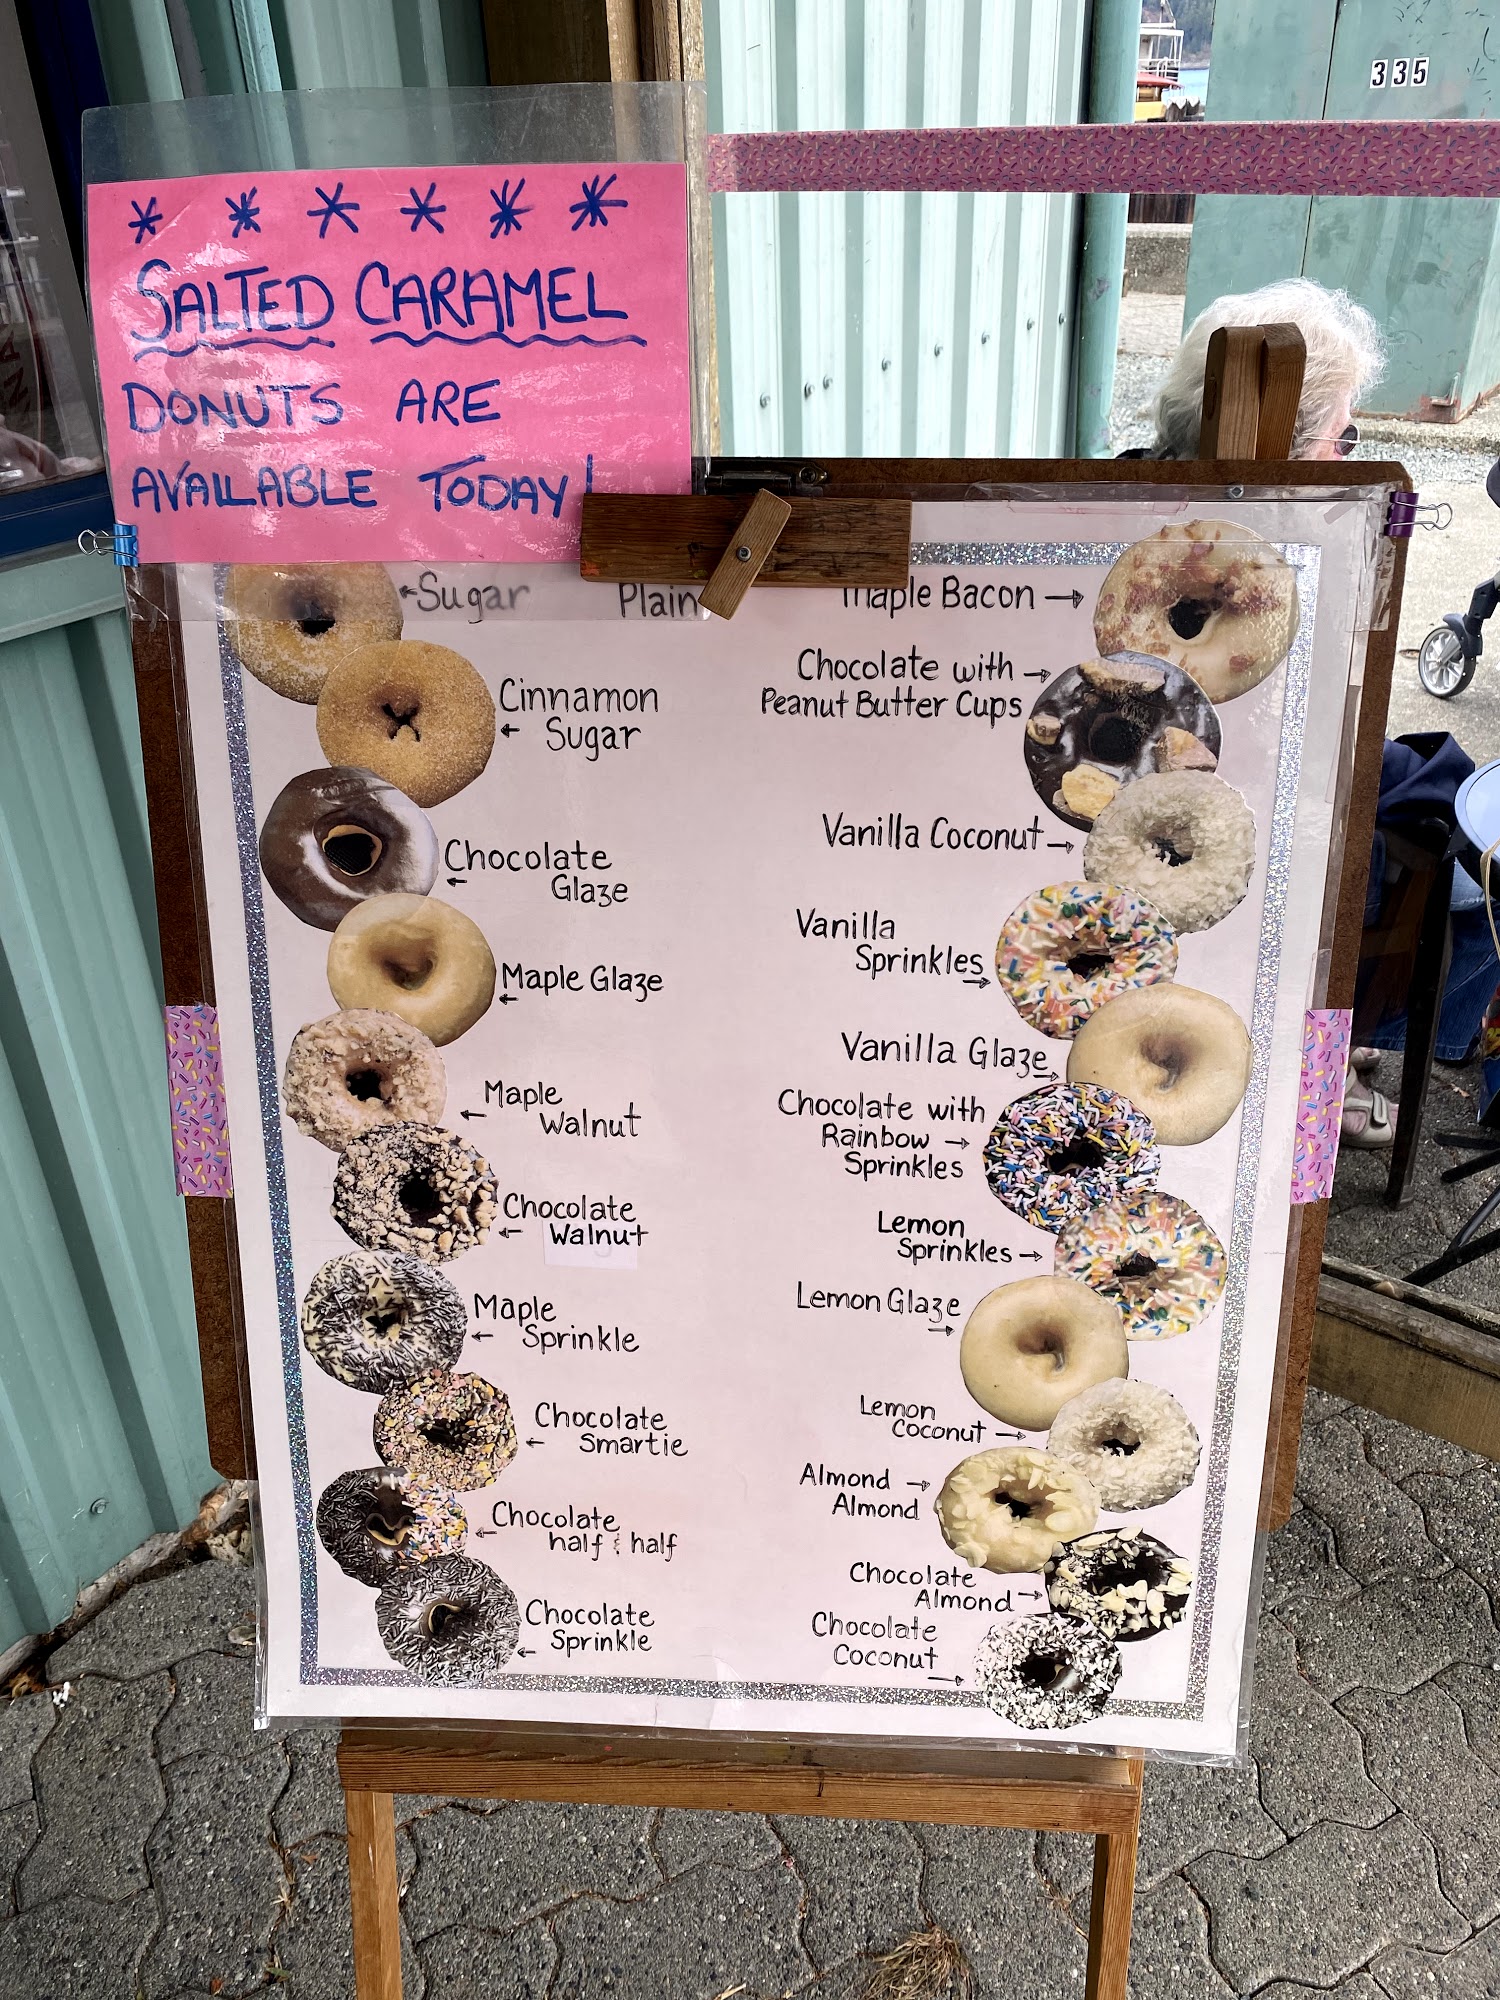 SALTED CARAMEL
DONUTS ARE
AVAILABLE TODAY!
335
Sugar
Plain
Cinnamon
Sugar
Chocolate
Glaze
Maple Glaze
Maple
Walnut
Chocolate
Walnut
Maple
Sprinkle
Chocolate
Smartie
Chocolate
half & half
Chocolate
Sprinkle
Maple Bacon
Chocolate with
Peanut Butter Cups
Vanilla Coconut
Vanilla
Sprinkles
Vanilla Glaze
Chocolate with
Rainbow
Sprinkles
Lemon
Sprinkles
Lemon Glaze
Lemon
Coconut
Almond
Almond
Chocolate
Almond
Chocolate
Coconut